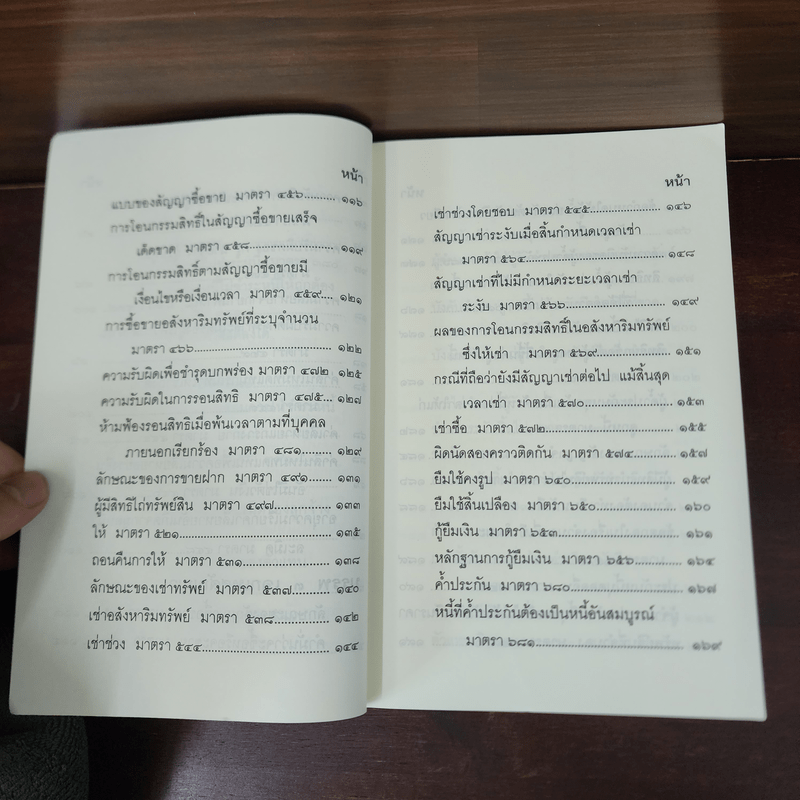 หน้า
แบบของสัญญาซื้อขาย มาตรา ๔๕๖.......... ๑๑๖
การโอนกรรมสิทธิ์ในสัญญาซื้อขายเสร็จ
เด็ดขาด มาตรา ๔๕๘.......................... ๑๑๙
การโอนกรรมสิทธิ์ตามสัญญาซื้อขายมี
เงื่อนไขหรือเงื่อนเวลา มาตรา ๔๕๙.... ๑๒๑
การซื้อขายอสังหาริมทรัพย์ที่ระบุจำนวน
มาตรา ๔๖๖.......................................... ๑๒๒
ความรับผิดเพื่อชำรุดบกพร่อง มาตรา ๔๗๒ ๑๒๕
ความรับผิดในการรอนสิทธิ มาตรา ๔๗๕... ๑๒๗
ห้ามฟ้องรอนสิทธิเมื่อพ้นเวลาตามที่บุคคล
ภายนอกเรียกร้อง มาตรา ๔๘๑........... ๑๒๙
ลักษณะของการขายฝาก มาตรา ๔๙๑........ ๑๓๑
ผู้มีสิทธิไถ่ทรัพย์สิน มาตรา ๔๙๗............. ๑๓๓
ให้ มาตรา ๕๒๑........................................ ๑๓๕
ถอนคืนการให้ มาตรา ๕๓๑...................... ๑๓๘
ลักษณะของเช่าทรัพย์ มาตรา ๕๓๗........... ๑๔๐
เช่าอสังหาริมทรัพย์ มาตรา ๕๓๘.............. ๑๔๒
เช่าช่วง มาตรา ๕๔๔................................ ๑๔๔
หน้า
เช่าช่วงโดยชอบ มาตรา ๕๔๕.................. ๑๔๖
สัญญาเช่าระงับเมื่อสิ้นกำหนดเวลาเช่า
มาตรา ๕๖๔.......................................... ๑๔๘
สัญญาเช่าที่ไม่มีกำหนดระยะเวลาเช่า
ระงับ มาตรา ๕๖๖................................ ๑๔๙
ผลของการโอนกรรมสิทธิ์ในอสังหาริมทรัพย์
ซึ่งให้เช่า มาตรา ๕๖๙......................... ๑๕๑
กรณีที่ถือว่ายังมีสัญญาเช่าต่อไป แม้สิ้นสุด
เวลาเช่า มาตรา ๕๗๐........................... ๑๕๓
เช่าซื้อ มาตรา ๕๗๒................................ ๑๕๕
ผิดนัดสองคราวติดกัน มาตรา ๕๗๔.......... ๑๕๗
ยืมใช้คงรูป มาตรา ๖๔๐........................... ๑๕๙
ยืมใช้สิ้นเปลือง มาตรา ๖๕๐..................... ๑๖๐
กู้ยืมเงิน มาตรา ๖๕๓................................ ๑๖๑
หลักฐานการกู้ยืมเงิน มาตรา ๖๕๖............. ๑๖๔
ค้ำประกัน มาตรา ๖๘๐.............................. ๑๖๗
หนี้ที่ค้ำประกันต้องเป็นหนี้อันสมบูรณ์
มาตรา ๖๘๑.......................................... ๑๖๙